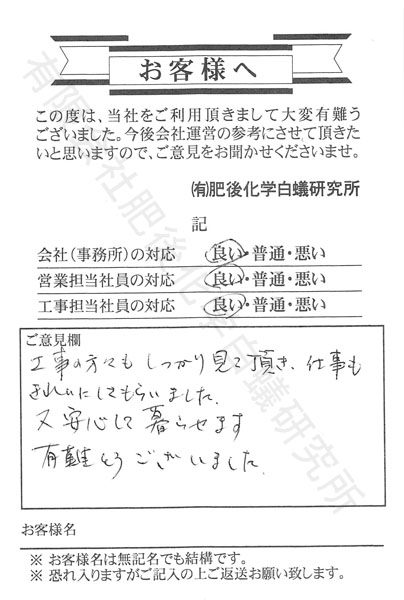 お客様へ
この度は、当社をご利用頂きまして大変有難う
ございました。今後会社運営の参考にさせて頂きた
いと思いますので、ご意見をお聞かせくださいませ。
㈲肥後化学白蟻研究所
記
会社（事務所）の対応 良い・普通・悪い
営業担当社員の対応 良い・普通・悪い
工事担当社員の対応 良い・普通・悪い
ご意見欄
工事の方々もしっかり見て頂き、仕事も
きれいにしてもらいました。
又安心して暮らせます
有難とうございました。
お客様名
※ お客様名は無記名でも結構です。
※ 恐れ入りますがご記入の上ご返送お願い致します。
有限会社肥後化学白蟻研究所